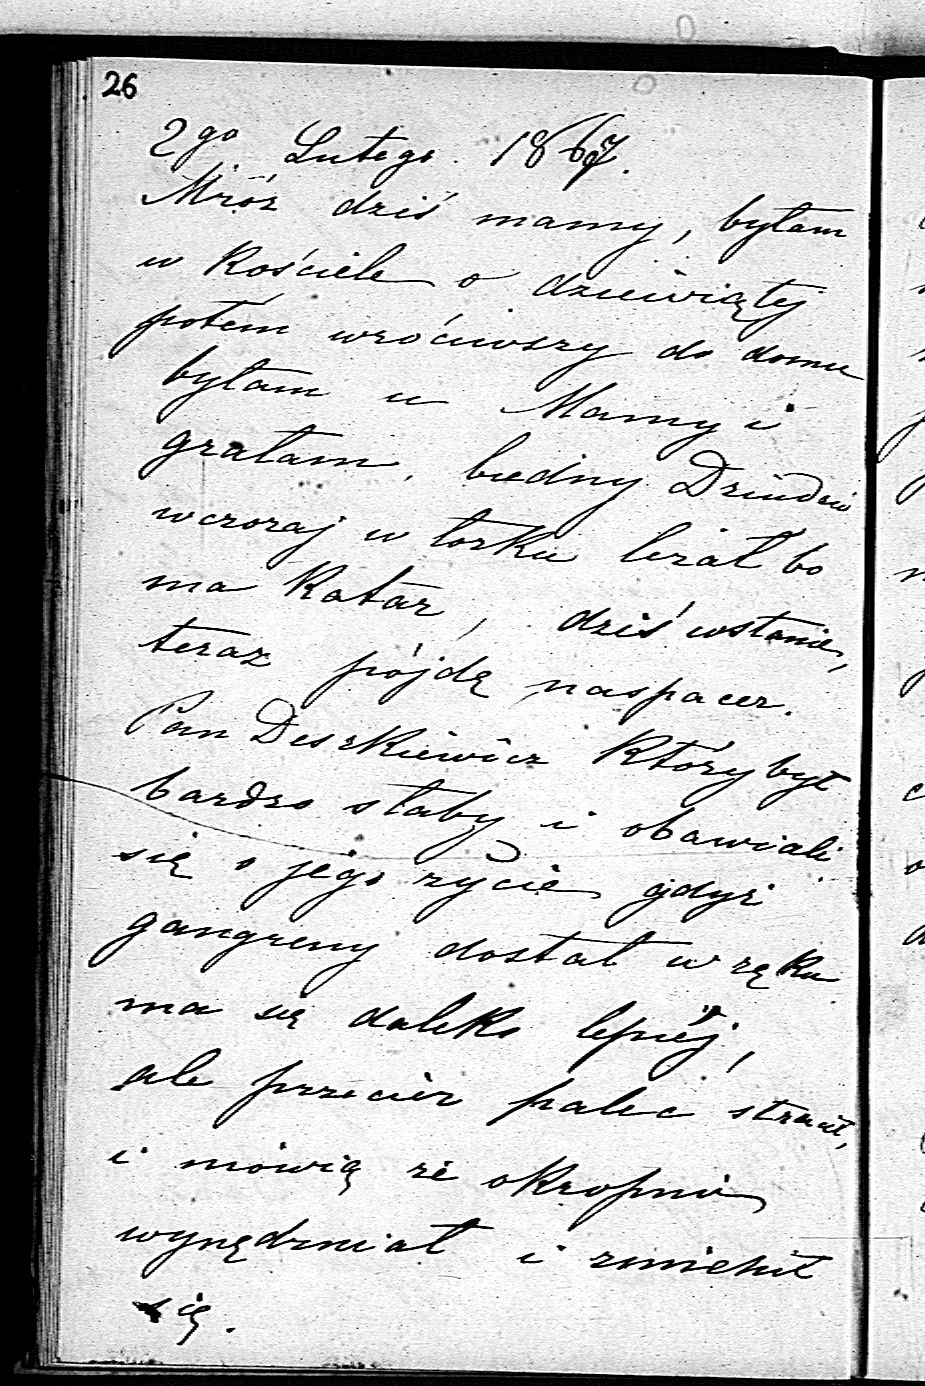 26
2go Lutego 1867.
Mróz dziś mamy, byłam
w Kościele o dziewiątej
potem wróciwszy do domu
byłam u Mamy i
grałam, biedny Dziadzio
wczoraj w łozku leżał bo
ma Katar, dziś wstanie,
teraz pójdę naspacer.
Pan Deszkiewicz Który był
bardzo słaby i obawiali
się o jego życie gdyż
gangreny dostał w ręku
ma się daleko lepiéj,
ale przecież palec stracił,
i mówią że okropnie
wynędzniał i zmienił
się.